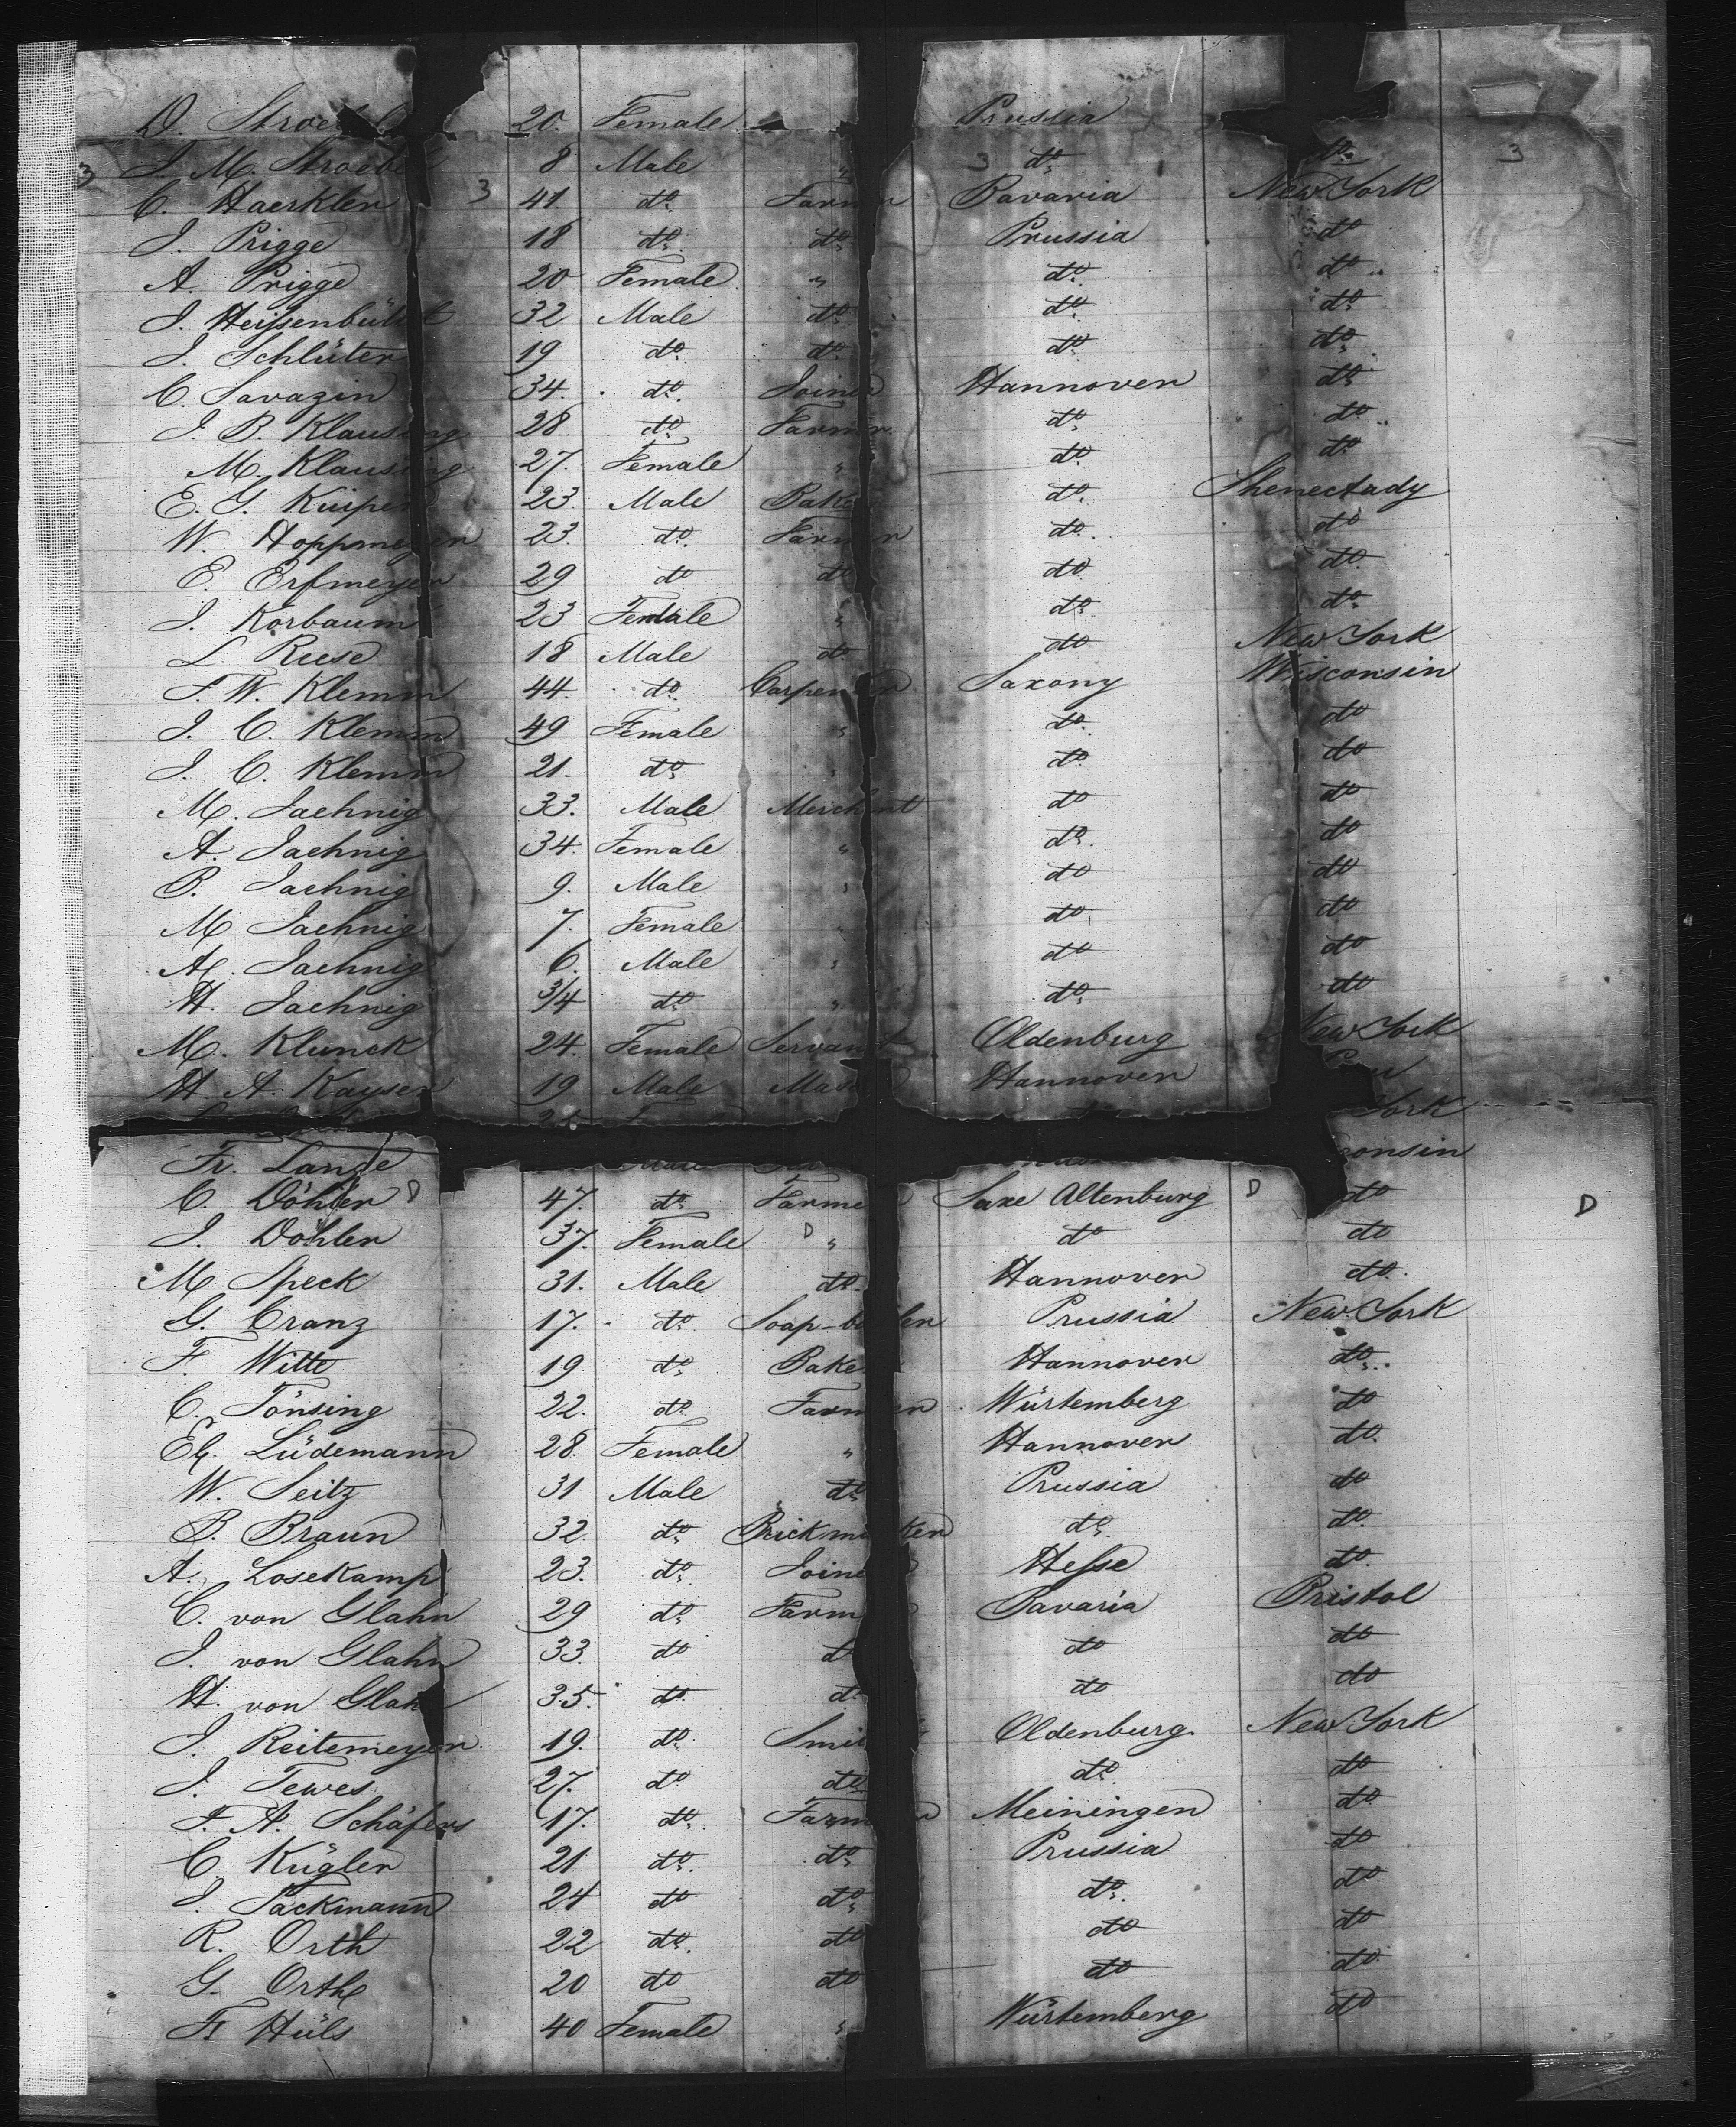 D. 20. Female Prussia
J. M. Stroebel 8 Male " do. do.
C. Haerkler 41. do. Farmer Bavaria New York
J. Prigge 18 do. do. Prussia do
A. Prigge 20 Female " do. do
J. Heissenbüttel 32 Male do. do. do.
J. Schlüter 19 do. do. do. do.
C. Savazin 34. do. Joiner Hannover do.
J. B. Klausing 28 do. Farmer. do. do.
M. Klausing 27. Female " do. do.
E. G. Kuiper 23. Male Baker do. Shenectady
W. Hoppmeyer 23. do. Farmer do. do
E. Erfmeyer 29 do do do do.
J. Korbaum 23 Female " do. do.
L. Reese 18 Male do. do New York
F. W. Klemm 44. do. Carpenter Saxony Wisconsin
J. C. Klemm 49 Female " do. do
J. C. Klemm 21. do. " do. do
M. Jaehnig 33. Male Merchant do do
A. Jaehnig 34. Female " do. do
B. Jaehnig 9. Male " do do
M. Jaehnig 7. Female " do. do
A. Jaehnig 6. Male " do do
H. Jaehnig 3/4 do. " do. do
M. Klunck 24. Female Servant Oldenburg New York
H. A. Kayser 19 Male Hannover
York
Fr. Lange Male consin
C. Döhler D 47. do. Farmer Saxe Altenburg D do D
J. Döhler 37. Female D " do do
M Speck 31. Male do. Hannover do.
G. Cranz 17. do. Soap-boiler Prussia New York
F. Witte 19 do. Baker Hannover do.
C. Tönsing 22. do. Farmer Würtemberg do
El. Lüdemann 28. Female " Hannover do.
W. Seitz 31 Male do. Prussia do
B. Braun 32. do. Brickmaker do. do.
A. Losekamp 23. do. Joiner Hesse do.
C. von Glahn 29 do. Farmer Bavaria Bristol
J. von Glahn 33. do do do do
H. von Glahn 35. do. do. do do
J. Reitemeyer. 19. do. Smith Oldenburg. New York
J. Tewes 27. do do. do. do
F. A. Schäfers 17. do. Farmer Meiningen do.
C. Kügler 21 do. do. Prussia do
J. Packmann 24 do do. do. do
R. Orth 22 do. do do do
G. Orth 20 do do do do.
Fr Hüls 40 Female " Würtemberg do